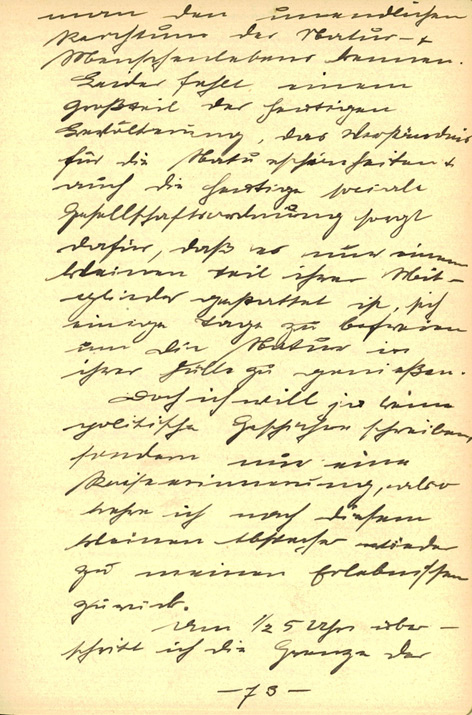 man den unendlichen
Reichtum der Natur- +
Menschenlebens kennen.
Leider fehlt einem
Großteil der heutigen
Bevölkerung, das Verständnis
für die Naturschönheiten +
auch die heutige soziale
Gesellschaftsordnung sorgt
dafür, daß es nur einem
kleinen Teil ihrer Mit-
glieder gestattet ist, sich
einige Tage zu befreien
um die Natur in
ihrer Fülle zu genießen.
Doch ich will ja keine
politische Geschichte schreiben,
sondern nur eine
Reiseerinnerung, also
kehre ich nach diesem
kleinen Abstecher wieder
zu meinen Erlebnissen
zurück.
Um 1/2 5 Uhr über-
schritt ich die Grenze der
-73-